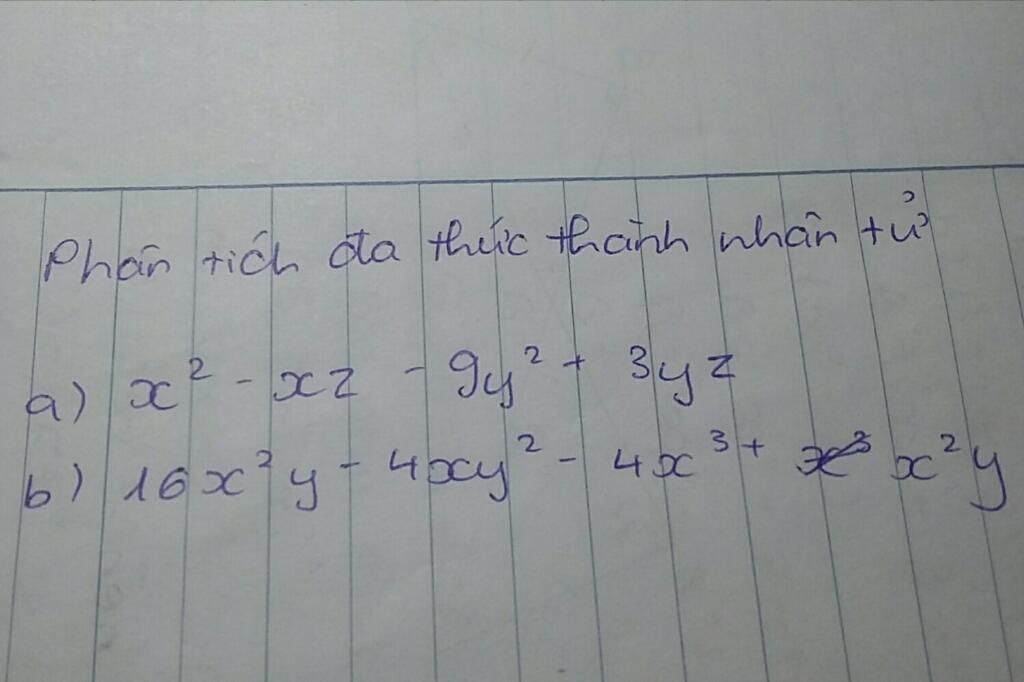 Phân tích đa thức thành nhân tử
a) x² - xz - 9y² + 3yz
b) 16x²y - 4xy² - 4x³ + x²y